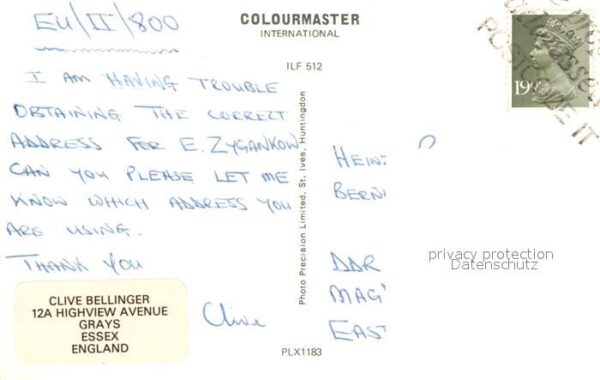 EU/II/800
COLOURMASTER
INTERNATIONAL
ILF 512
I AM HAVING TROUBLE
OBTAINING THE CORRECT
ADDRESS FOR E. ZYGANKOW
CAN YOU PLEASE LET ME
KNOW WHICH ADDRESS YOU
ARE USING.
THANK YOU
Clive
CLIVE BELLINGER
12A HIGHVIEW AVENUE
GRAYS
ESSEX
ENGLAND
Photo Precision Limited, St. Ives, Huntingdon
PLX1183
19½
POSTCODE IT
DDR
MAG
EAST
privacy protection
Datenschutz